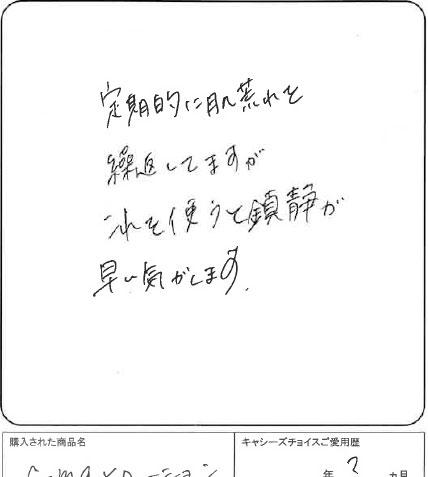 定期的に肌荒れを
繰返してますが
これを使うと鎮静が
早い気がします。
購入された商品名
キャシーズチョイスご愛用歴
年 2 カ月